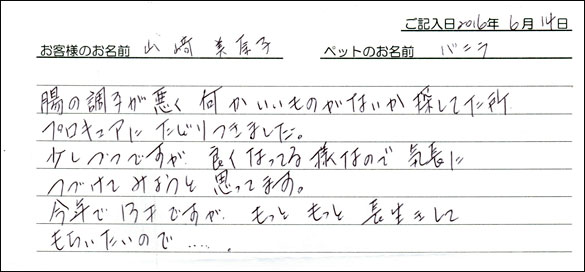 ご記入日2016年 6月 14日
お客様のお名前 山崎 美保子 ペットのお名前 バニラ
腸の調子が悪く 何かいいものがないか 探してた所
プロキュアに たどりつきました。
少しづつですが 良くなってる様なので 気長に
つづけて みようと 思ってます。
今年で 13才ですが もっと もっと 長生きして
もらいたいので……。